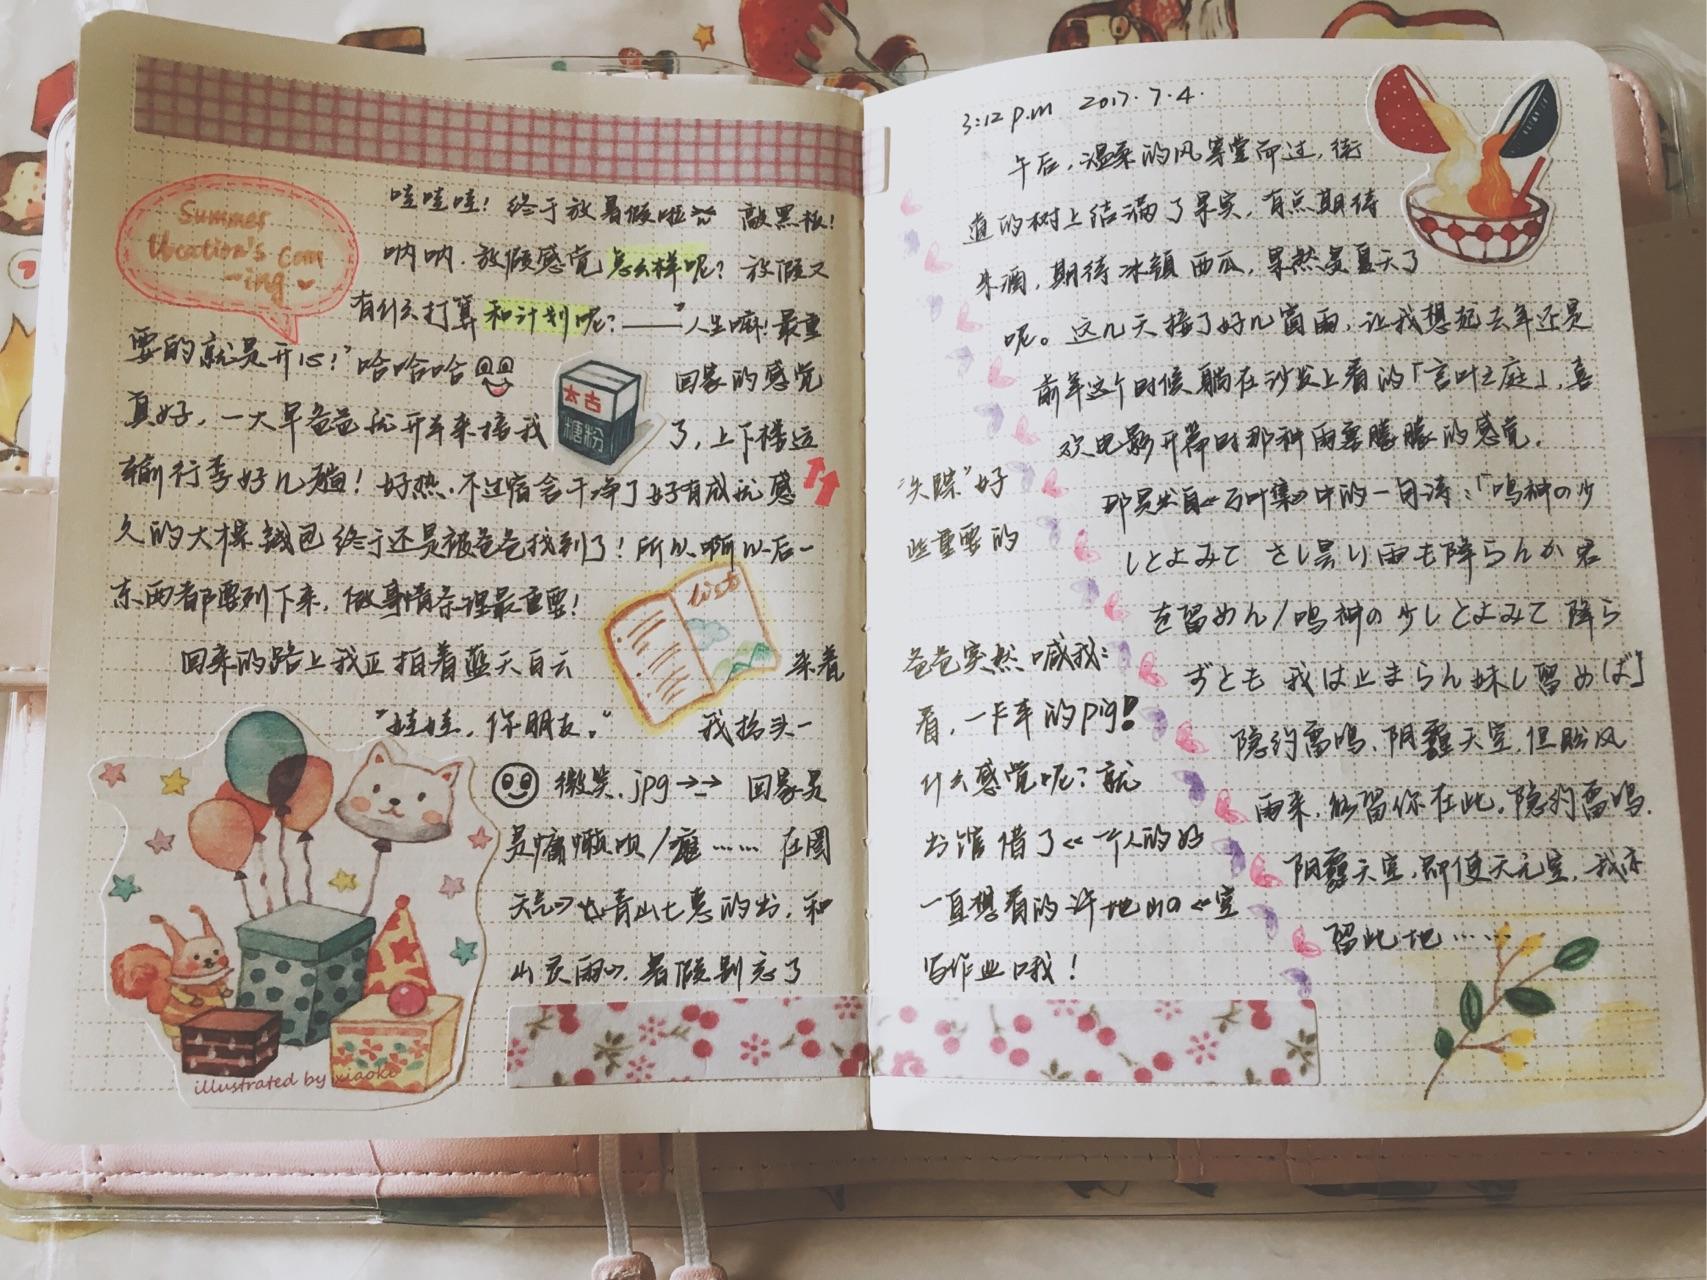 Summer
Vacation's com
-ing
哇哇哇！终于放暑假啦 敲黑板！
呐呐，放假感觉怎么样呢？放假又
有什么打算和计划呢？——“人生嘛！最重
要的就是开心！”哈哈哈 回家的感觉
真好，一大早爸爸就开车来接我了，上下楼运
太古
糖粉
输行李好几趟！好热，不过宿舍干净了好有成就感 “失踪”好
久的大 钱包终于还是被爸爸找到了！所以啊以后一些重要的
东西都要列下来，做事情条理最重要！
List
回来的路上我正拍着蓝天白云 来着 爸爸突然喊我：
“娃娃，你朋友。” 我抬头一看，一卡车的pig！
微笑.jpg→_→ 回家是什么感觉呢？就
是慵懒呗/瘫…… 在图书馆借了《一个人的好
天气》 青山七惠的书，和一直想看的许地山の《空
山灵雨》，暑假别忘了写作业哦！
illustrated by xiaoke
3:12 p.m 2017.7.4.
午后，温柔的风穿堂而过，街
道的树上结满了果实，有点期待
朱酒，期待冰镇西瓜，果然是夏天了
呢。这几天接了好几窗雨，让我想起去年还是
前年这个时候躺在沙发上看的「言叶之庭」，喜
欢电影开篇时那种雨雾朦朦的感觉。
那是出自《万叶集》中的一句诗：「鳴神の少
しとよみて さし曇り雨も降らんか君
を留めん/鳴神の少しとよみて 降ら
ずとも 我は止まらん妹し留めば」
隐约雷鸣，阴霾天空，但盼风
雨来，能留你在此。隐约雷鸣，
阴霾天空，即使天无空，我亦
留此地……